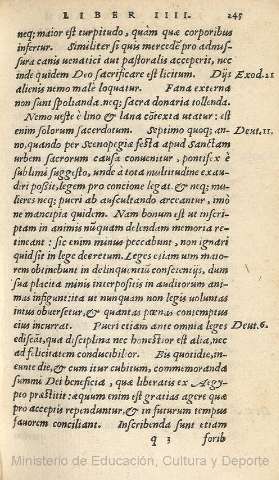 LIBER IIII. 245
neq; maior est turpitudo, quàm quæ corporibus
insertur. Similiter si quis mercedē pro admis-
sura canis uenatici aut pastoralis acceperit, nec
inde quidem Deo sacrificare est licitum. Dijs Exod. 21
alienis nemo male loquatur. Fana externa
non sunt spolianda. neq; sacra donaria tollenda.
Nemo ueste è lino & lana cōtexta utatur: est
enim solorum sacerdotum. Septimo quoq; an- Deut. 11.
no, quando per Scenopegia festa apud sanctam
urbem sacrorum causa conuenitur, pontifex è
sublimi suggesto, unde à tota multitudine exau-
diri possit, legem pro concione legat. & neq; mu-
lieres neq; pueri ab auscultando arceantur, imò
ne mancipia quidem. Nam bonum est ut inscri-
ptam in animis nūquam delendam memoria re-
tineant: sic enim minus peccabunt, non ignari
quid sit in lege decretum. Leges etiam uim maio-
rem obtinebunt in delinquentiū conscientijs, dum
sua placita minis interpositis in auditorum ani-
mas infigunt: ita ut nunquam non legis uoluntas
intus obuersetur, & quantas pœnas contemptus
eius incurrat. Pueri etiam ante omnia leges Deut. 6.
ediscāt, qua disciplina nec honestior est alia, nec
ad felicitatem conducibilior. Bis quotidie, in-
eunte die, & cum itur cubitum, commemoranda
summi Dei beneficia, quæ liberatis ex Aegy-
pto præstitit: æquum enim est gratias agere quæ
pro acceptis rependuntur, & in futurum tempus
fauorem conciliant. Inscribenda sunt etiam
q 3 forib
Ministerio de Educación, Cultura y Deporte